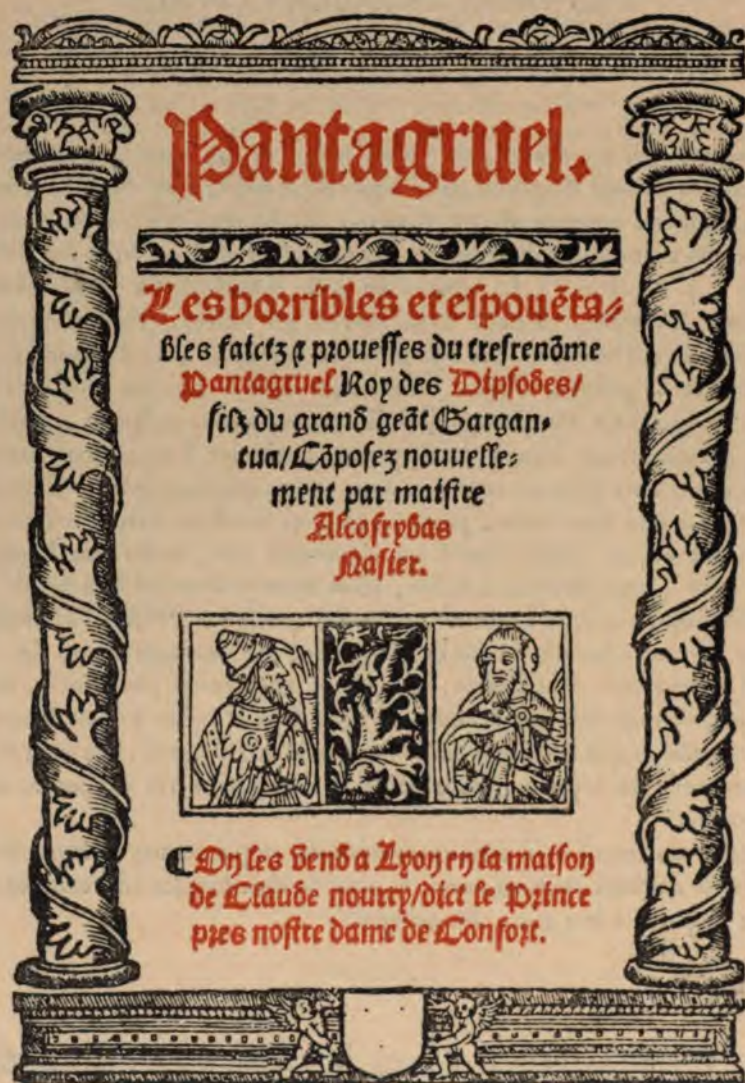 Pantagruel.
Les horribles et espouẽta⸗
bles faictz ⁊ prouesses du tresrenõme
Pantagruel Roy des Dipsodes/
filz du grand geãt Gargan⸗
tua/Cõposez nouuelle⸗
ment par maistre
Alcofrybas
Nasier.
¶On les vend a Lyon en la maison
de Claude nourry/dict le Prince
pres nostre dame de Confort.